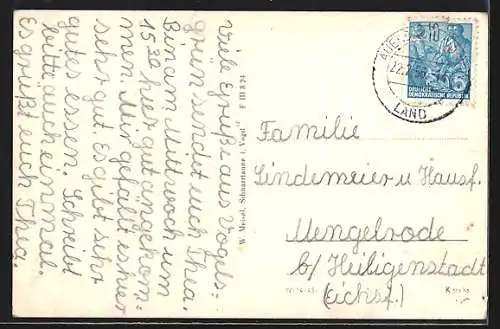 Viele Grüße aus Vogels-
grün sendet euch Thea.
Bin am Mittwoch um
1530 hier gut angekom-
men. Mir gefällt es hier
sehr gut. Es gibt sehr
gutes essen. Schreibt
bitte auch einmal.
Es grüßt euch Thea.
W. Meisel, Schnarrtanne i. Vogtl.
DEUTSCHE
DEMOKRATISCHE REPUBLIK
LAND
Familie
Lindemeier u Hausf.
Mengelrode
b/ Heiligenstadt
(Eichsf.)